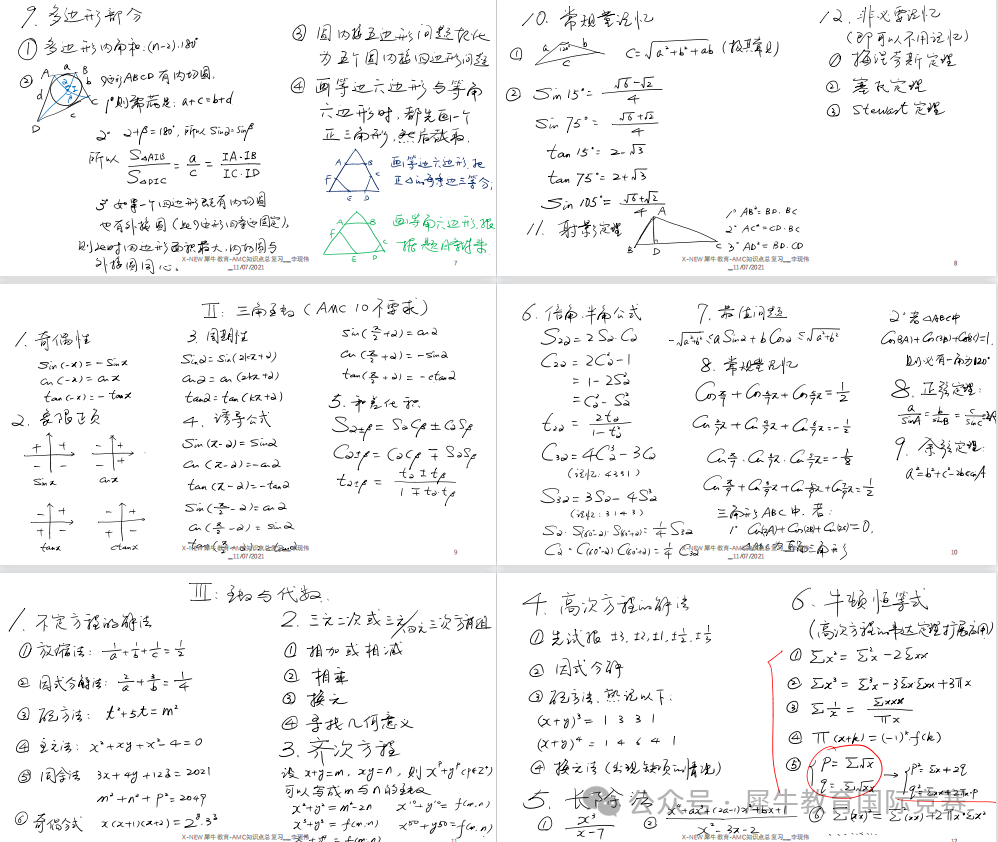 9. 多边形部分
① 多边形内角和: (n-2)·180°
② A a B
b
d
C
c
D
四边形ABCD有内切圆,
1° 则常满足: a+c=b+d
2° α+β=180°, 所以 Sinα=Sinβ
所以 S△AIB/S△DIC = a/c = IA·IB/IC·ID
3° 如果一个四边形既有内切圆
也有外接圆(此四边形四条边固定),
则此时四边形面积最大, 内切圆与
外接圆同心。
③ 圆内接五边形问题转化
为五个圆内接四边形问题
④ 画等边六边形与等角
六边形时, 都先画一个
正三角形, 然后截取.
A B
F C
E D
画等边六边形, 把
正△的每条边三等分;
A B
F C
E D
画等角六边形, 根
据题目
X-NEW 犀牛教育-AMC知识点总复习__李现伟
__11/07/2021
7
10. 常规量记忆
① a 120° b
c
C=√(a²+b²+ab) (极其常见)
② Sin15°= (√6-√2)/4
Sin75°= (√6+√2)/4
tan15°= 2-√3
tan75°= 2+√3
Sin105°= (√6+√2)/4
11. 射影定理
A
B D C
1° AB²=BD·BC
2° AC²=CD·BC
3° AD²=BD·CD
12. 非必要记忆
(即可以不用记忆)
① 梅涅劳斯定理
② 塞瓦定理
③ Stewart定理
X-NEW 犀牛教育-AMC知识点总复习__李现伟
__11/07/2021
8
II: 三角函数 (AMC 10不要求)
1. 奇偶性
Sin(-x)=-Sinx
cos(-x)=cosx
tan(-x)=-tanx
2. 象限正负
Sinx
cosx
tanx
ctanx
3. 周期性
Sinα=Sin(2kπ+α)
cosα=cos(2kπ+α)
tanα=tan(kπ+α)
4. 诱导公式
Sin(π-α)=Sinα
cos(π-α)=-cosα
tan(π-α)=-tanα
Sin(π/2-α)=cosα
cos(π/2-α)=Sinα
sin(π/2+α)=cosα
cos(π/2+α)=-sinα
tan(π/2+α)=-ctanα
5. 和差化积
Sα±β = SαCβ ± CαSβ
Cα±β = CαCβ ∓ SαSβ
tα±β = (tα±tβ)/(1∓tα·tβ)
X-NEW 犀牛教育-AMC知识点总复习__李现伟
__11/07/2021
9
6. 倍角、半角公式
S2α=2Sα·Cα
C2α=2C²α-1
=1-2S²α
=C²α-S²α
t2α= 2tα/(1-t²α)
C3α=4C³α-3Cα
(记忆: 4331)
S3α=3Sα-4S³α
(记忆: 3143)
Sα·S(60°-α)·S(60°+α)=1/4 S3α
Cα·C(60°-α)·C(60°+α)=1/4 C3α
7. 最值问题
-√(a²+b²)≤aSinα+bCosα≤√(a²+b²)
8. 常规量记忆
三角形ABC中, 若:
1° Cos(2A)+Cos(2B)+Cos(2C)=0,
2° 若△ABC中
Cos(3A)+Cos(3B)+Cos(3C)=1,
则必有一角为120°
8. 正弦定理:
a/sinA=b/sinB=c/sinC=2R
9. 余弦定理:
a²=b²+c²-2bccosA
X-NEW 犀牛教育-AMC知识点总复习__李现伟
__11/07/2021
10
III: 函数与代数.
1. 不定方程的解法
① 放缩法: 1/a+1/b+1/c=1/2
② 因式分解法: 2/a+3/b=1/4
③ 配方法: t²+5t=m²
④ 主元法: x²+xy+x²-4=0
⑤ 同余法 3x+4y+12z=2021
m²+n²+p²=2049
⑥ 奇偶分析
2. 三元二次或三元/四元三次方程组
① 相加或相减
② 相乘
③ 换元
④ 寻找几何意义
3. 齐次方程
设 x+y=m, xy=n, 则 x^p+y^p(p∈Z⁺)
可以写成m与n的函数
x²+y²=m²-2n x¹⁰+y¹⁰=f(m.n)
x³+y³=f(m.n) x⁵⁰+y⁵⁰=f(m.n)
X-NEW 犀牛教育-AMC知识点总复习__李现伟
11
4. 高次方程的解法
① 先试根 ±3, ±2, ±1, ±1/2, ±1/3
② 因式分解
③ 配方法, 熟记以下:
(x+y)³= 1 3 3 1
(x+y)⁴= 1 4 6 4 1
④ 换元法(出现缺项的情况)
5. 长除法
① x³/(x-7)
6. 牛顿恒等式
(高次方程的韦达定理扩展应用)
① Σx²=Σ²x-2Σxx
② Σx³=Σ³x-3ΣxΣxx+3πx
③ Σ1/x=Σxxx/πx
④ π(x+k)=(-1)ⁿf(k)
⑤ {p=Σ√x
q=Σ√x√x
→ {p²=Σx+2q
公众号 · 犀牛教育国际竞赛
X-NEW 犀牛教育-AMC知识点总复习__李现伟